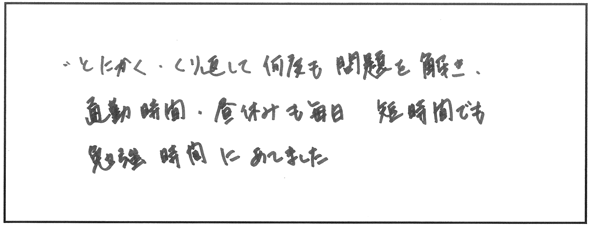 ・とにかく・くり返して何度も問題を解き、
通勤時間・昼休みも毎日 短時間でも
勉強時間にあてました